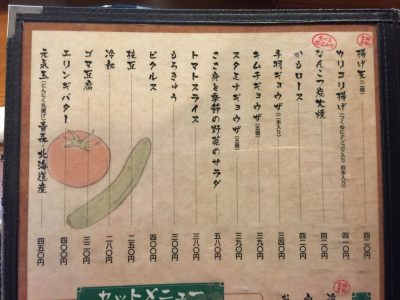 揚げ出し(二個)…四二〇円
カリコリ揚げ(つくねにナンコツ入り 四本入り)…四二〇円
なんこつ炭火焼…四二〇円
かもロース…四二〇円
手羽ギョウザ(二本入り)…三四〇円
キムチギョウザ(五個)…三九〇円
スタミナギョウザ(五個)…三九〇円
ささ身と季節の野菜のサラダ…五八〇円
トマトスライス…三七〇円
もろきゅう…三二〇円
ピクルス…四〇〇円
枝豆…二五〇円
冷奴…二八〇円
ゴマ豆腐…三二〇円
エリンギバター…四〇〇円
元気玉(にんにく丸揚げ) 青森 北海道産…四五〇円
セットメニュー